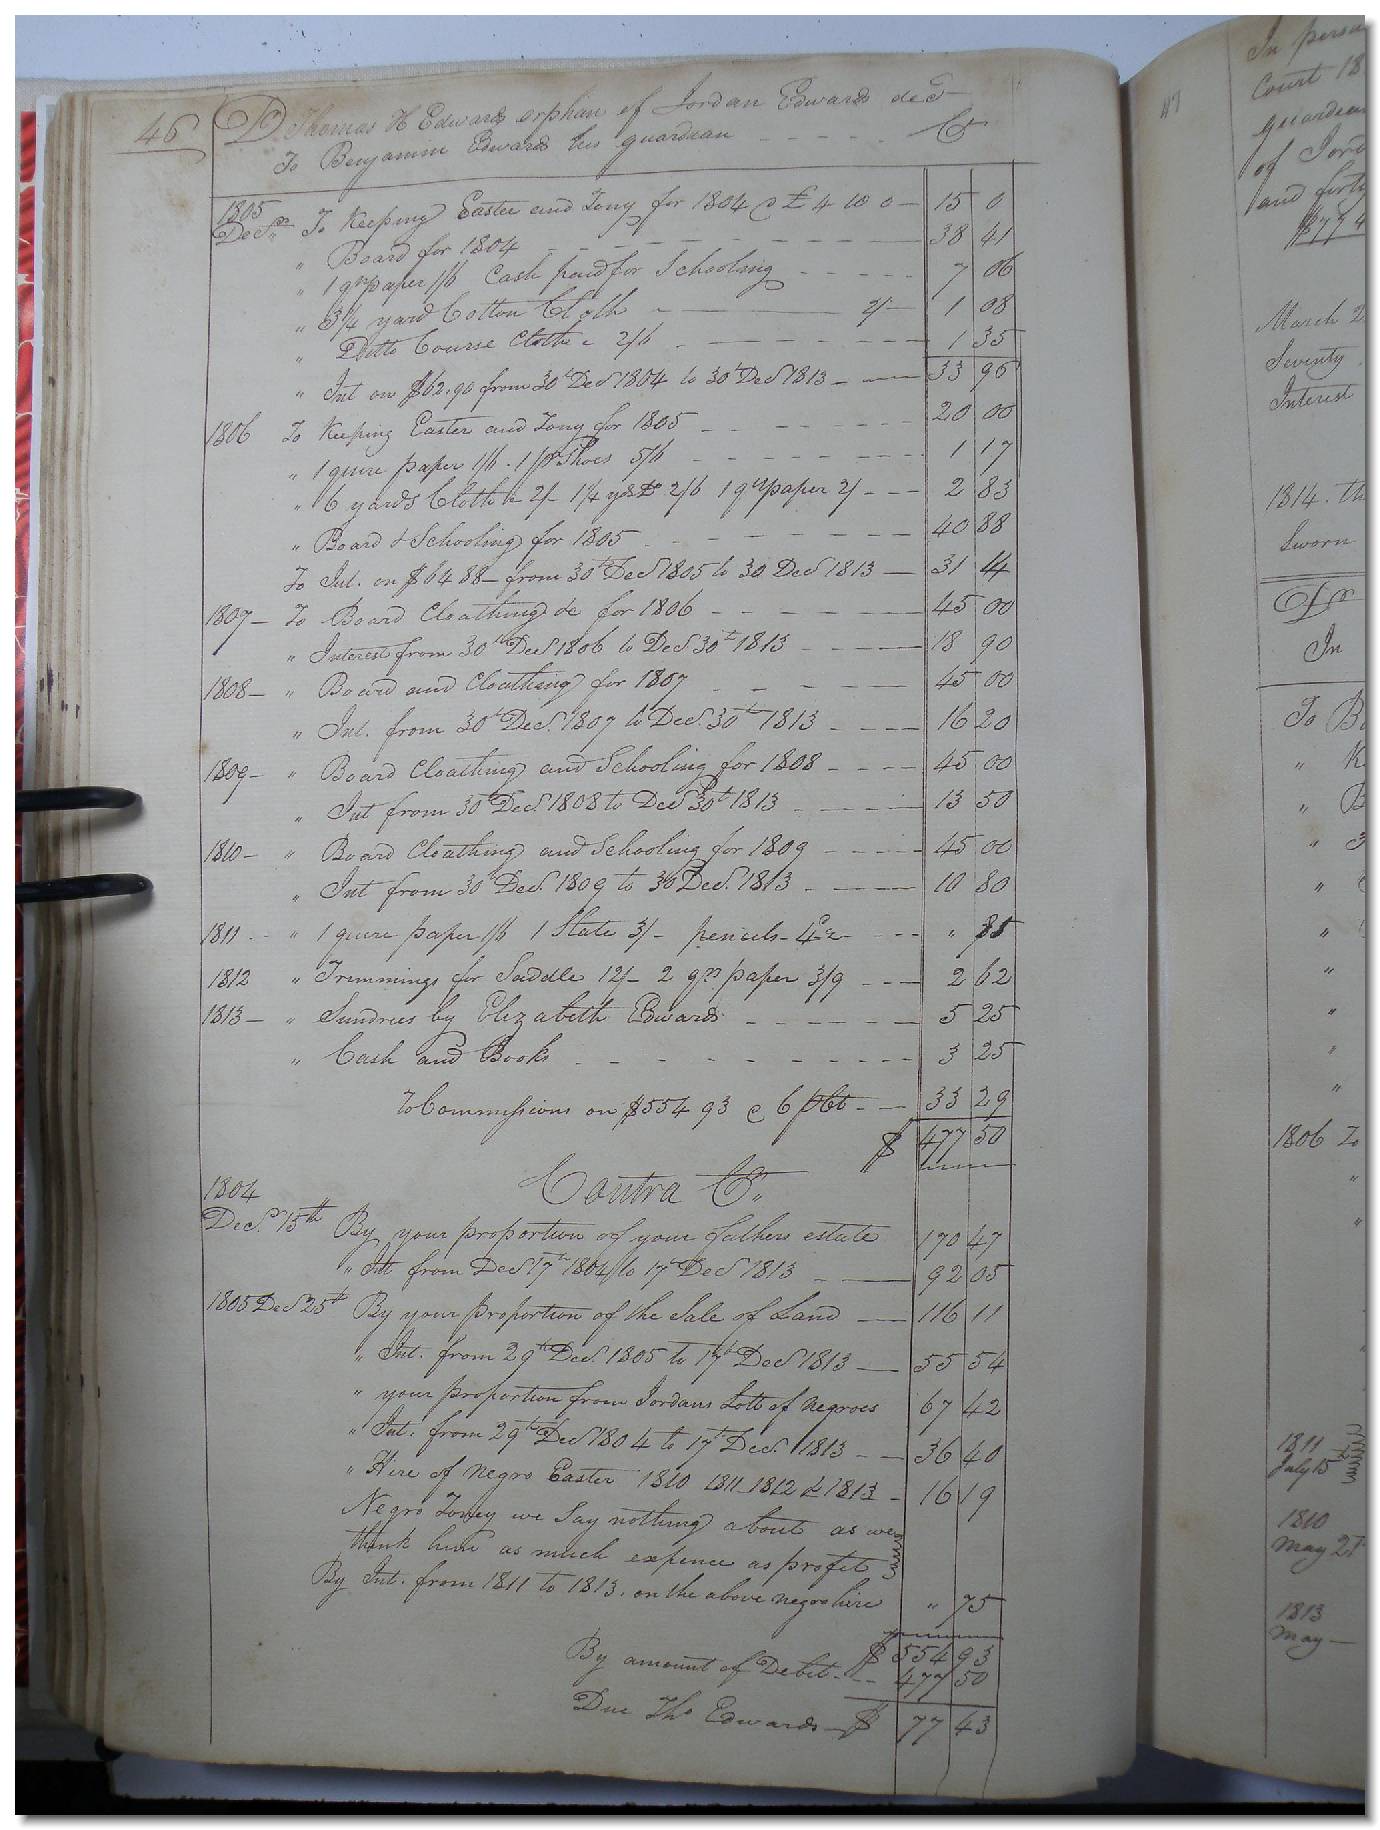 46 Dr Thomas H Edwards orphan of Jordan Edwards decd
To Benjamin Edwards his guardian - - - - - Cr
1805
Decr " To Keeping Easter and Tony for 1804 @ £ 4 10 0 — 15 0
" Board for 1804 - - - 38 41
" 1 qr paper 1/6 Cash paid for Schooling - - - - - 7 06
" 3/4 yard Cotton Cloth - — — 2/- 1 08
" Ditto Course Clothe - 2/6 - - - 1 35
" Int on $62.90 from 30th Decr 1804 to 30th Decr 1813 - — 33 96
1806 To Keeping Easter and Tony for 1805 - - - 20 00
" 1 quire paper 1/6 . 1 pr Shoes 5/6 - - - 1 17
" 6 yards Cloth @ 2/- 1 1/4 yds Do 2/6 1 qr paper 2/ - - - 2 83
" Board & Schooling for 1805 - - - 40 88
To Int. on $64 88 — from 30th Decr 1805 to 30 Decr 1813 — 31 14
1807 — To Board Cloathing &c for 1806 - - - 45 00
" Interest from 30th Decr 1806 to Decr 30th 1813 - - - 18 90
1808 — " Board and Cloathing for 1807 - - - 45 00
" Int. from 30th Decr. 1807 to Decr. 30th 1813 - - - 16 20
1809 - " Board Cloathing and Schooling for 1808 - - - 45 00
" Int from 30th Decr. 1808 to Decr 30th 1813 - - - 13 50
1810 - " Board Cloathing and Schooling for 1809 - - - 45 00
" Int from 30 Decr. 1809 to 30 Decr. 1813 - - - 10 80
1811 - " 1 quire paper 1/6 1 Slate 3/- pencils - - - " 85
1812 " Trimmings for Saddle 12/- 2 qrs paper 3/9 - - - 2 62
1813 — " Sundries by Elizabeth Edwards - - - 5 25
" Cash and Books - - - 3 25
To Commissions on $554 93 @ 6 pCt - - 33 29
$ 477 50
Contra Cr.
1804
Decr. 15th By your proportion of your fathers estate 170 47
" Int from Decr 17th 1804 to 17 Decr 1813 - — 92 05
1805 Decr 25th By your proportion of the Sale of Land — 116 11
" Int. from 29th Decr. 1805 to 17th Decr 1813 — 55 54
" your proportion from Jordans Lott of negroes 67 42
" Int. from 29th Decr 1804 to 17th Decr. 1813 - - 36 40
" Hire of negro Easter 1810 1811 1812 & 1813 - 16 19
Negro Toney we Say nothing about as we
think him as much expence as profit
By Int. from 1811 to 1813. on the above negro hire " 75
$ 554 93
By amount of Debit - - - 477 50
Due Thos Edwards — $ 77 43
47
In
Court 18
of
and forty
$77 4
March 2
Seventy
Interest
1814. th
Sworn
Dr
In
To
"
"
"
"
"
"
"
"
"
1806 To
"
"
1811
July 15
1810
May 21
1813
May —